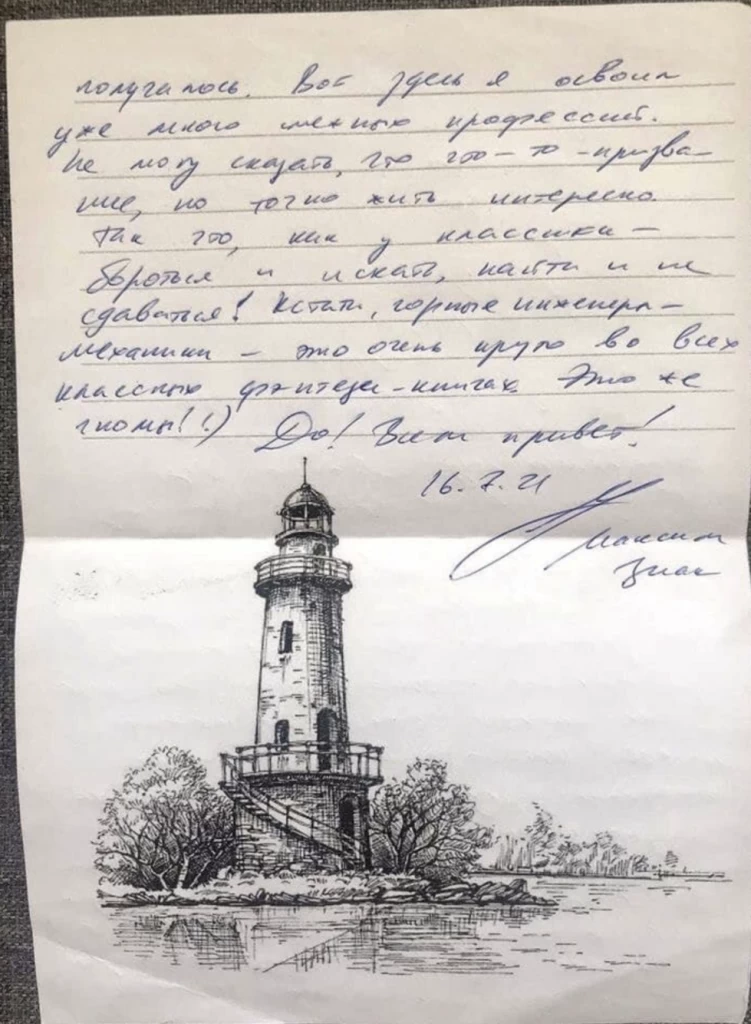 получалось. Вот здесь я освоил
уже много смежных профессий.
Не могу сказать, что это-то - призва-
ние, но точно жить интересно.
Так что, как у классика -
бороться и искать, найти и не
сдаваться! Кстати, горные инженеры-
механики - это очень круто во всех
классных фэнтези-книгах. Это же
гномы! :)
До! Всем привет!
16.7.21
Максим
Знак